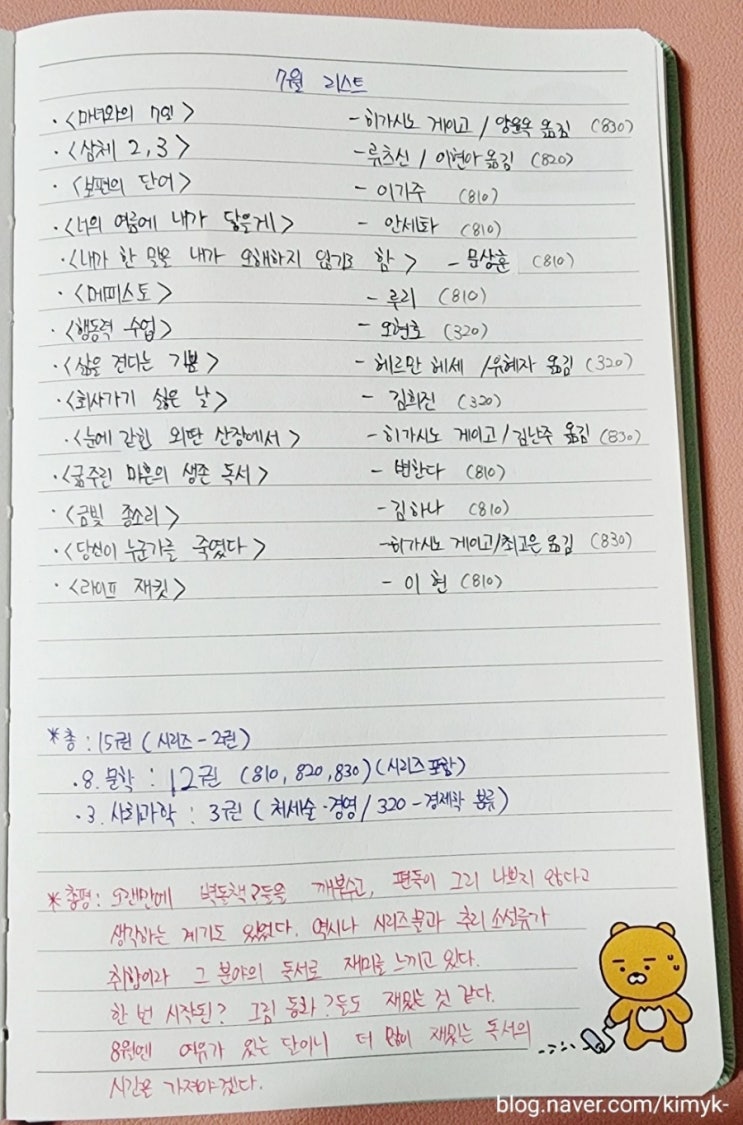 7월 리스트
· <마녀와의 7일> - 히가시노 게이고 / 양윤옥 옮김 (830)
· <삼체 2, 3> - 류츠신 / 이현아 옮김 (820)
· <보편의 단어> - 이기주 (810)
· <너의 여름에 내가 닿을게> - 안세화 (810)
· <내가 한 말을 내가 오해하지 않기로 함> - 문상훈 (810)
· <메피스토> - 루리 (810)
· <행동력 수업> - 오현호 (320)
· <삶을 견디는 기쁨> - 헤르만 헤세 / 유혜자 옮김 (320)
· <회사가기 싫은 날> - 김희진 (320)
· <눈에 갇힌 외딴 산장에서> - 히가시노 게이고 / 김난주 옮김 (830)
· <굶주린 마흔의 생존 독서> - 변한다 (810)
· <금빛 종소리> - 김하나 (810)
· <당신이 누군가를 죽였다> - 히가시노 게이고/최고은 옮김 (830)
· <라이프 재킷> - 이현 (810)
*총 : 15권 (시리즈 - 2권)
· 8. 문학 : 12권 (810, 820, 830) (시리즈 포함)
· 3. 사회과학 : 3권 (처세술·경영 / 320 - 경제학 분류)
*총평 : 오랜만에 벽돌책?들을 깨부수고, 편독이 그리 나쁘지 않다고
생각하는 계기도 있었다. 역시나 시리즈물과 추리 소설류가
취향이라 그 분야의 독서로 재미를 느끼고 있다.
한 번 시작된? 그림 동화?들도 재밌는 것 같다.
8월엔 여유가 있는 달이니 더 많이 재밌는 독서의
시간을 가져야겠다.
blog.naver.com/kimyk-